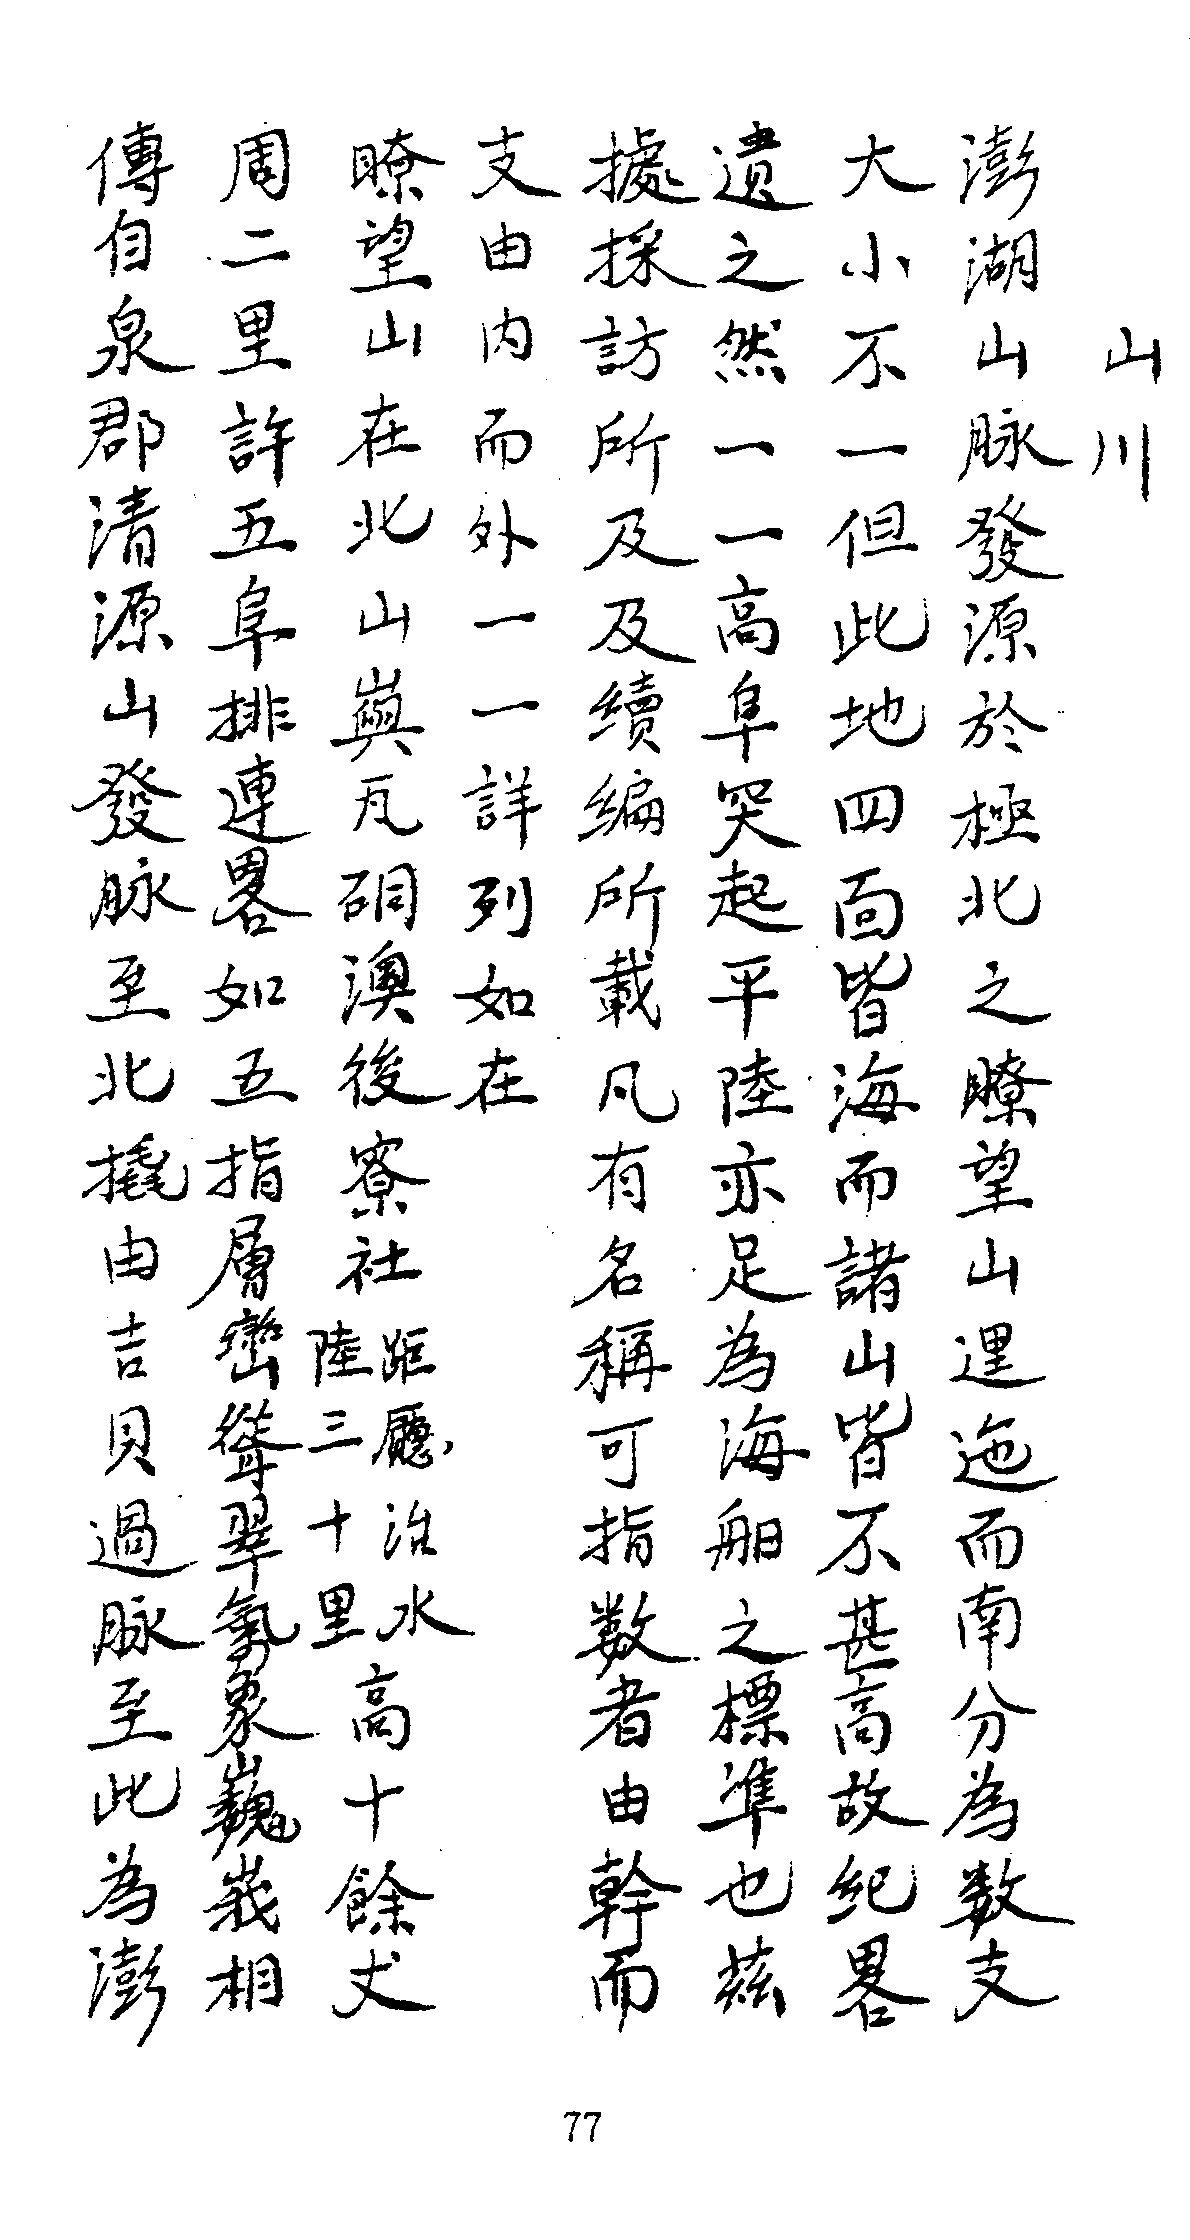 山川
澎湖山脉發源於極北之瞭望山逕迤而南分為数支
大小不一但此地四面皆海而諸山皆不甚高故紀畧
遺之然一一高阜突起平陸亦足為海船之標準也茲
據採訪所及及續編所載凡有名稱可指數者由幹而
支由内而外一一詳列如在
瞭望山在北山嶼瓦硐澳後寮社距廳治水陸三十里高十餘丈
周二里許五阜排連畧如五指層巒聳翠氣象巍峩相
傳自泉郡清源山發脉至北撬由吉貝過脉至此為澎
77